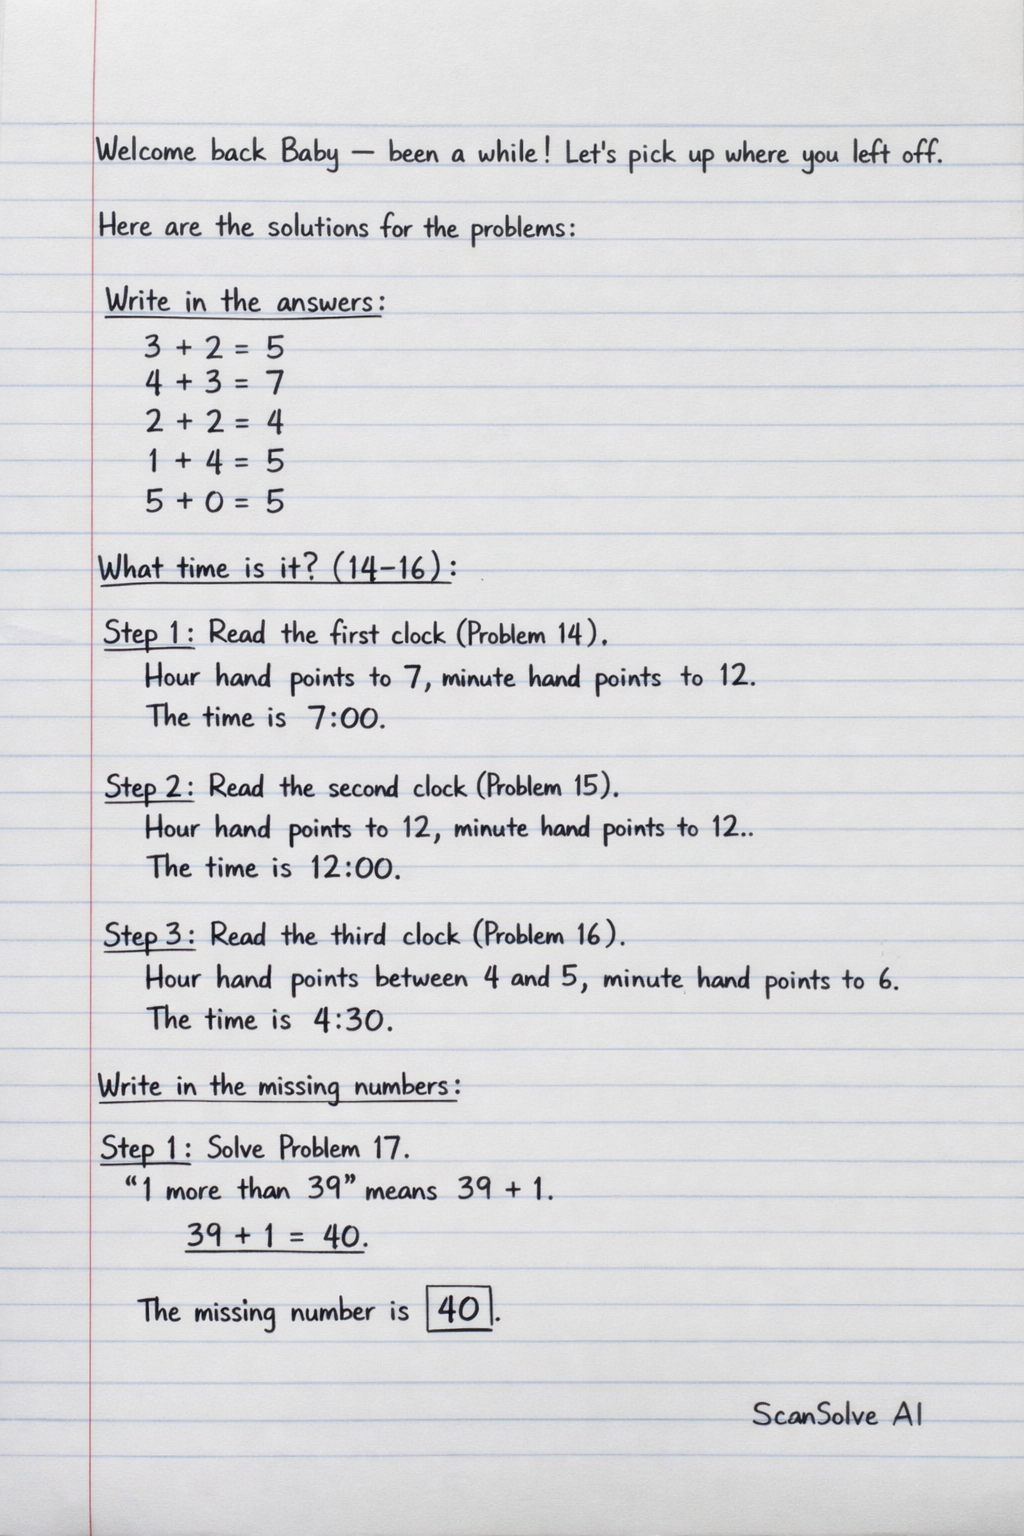 Welcome back Baby — been a while! Let's pick up where you left off.
Here are the solutions for the problems:
Write in the answers:
3 + 2 = 5
4 + 3 = 7
2 + 2 = 4
1 + 4 = 5
5 + 0 = 5
What time is it? (14-16):
Step 1: Read the first clock (Problem 14).
Hour hand points to 7, minute hand points to 12.
The time is 7:00.
Step 2: Read the second clock (Problem 15).
Hour hand points to 12, minute hand points to 12..
The time is 12:00.
Step 3: Read the third clock (Problem 16).
Hour hand points between 4 and 5, minute hand points to 6.
The time is 4:30.
Write in the missing numbers:
Step 1: Solve Problem 17.
“1 more than 39” means 39 + 1.
39 + 1 = 40.
The missing number is 40.
ScanSolve AI